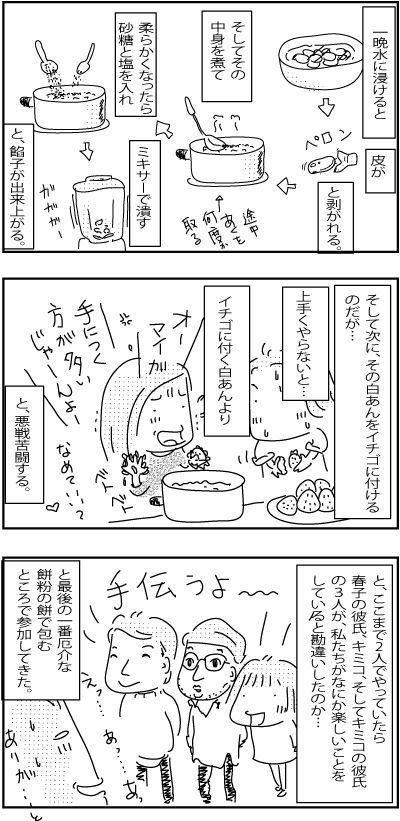 一晩水に浸けると
ペロン
皮が
と剥がれる。
そしてその
中身を煮て
途中
あくを
何度か
取る
柔らかくなったら
砂糖と塩を入れ
ミキサーで潰す
ガガガー
と、餡子が出来上がる。
そして次に、その白あんをイチゴに付ける
のだが…
上手くやらないと…
イチゴに付く白あんより
オー
マイガ
手につく
方が多い
じゃーんよー
なめていい？
♡
ズズズ
と、悪戦苦闘する。
と、ここまで2人でやっていたら
春子の彼氏、キミコ、そしてキミコの彼氏
の3人が、私たちがなにか楽しいことを
していると勘違いしたのか…
手伝うよ〜
えっ
あっ
あっ
と最後の一番厄介な
餅粉の餅で包む
ところで参加してきた。
ありが…と